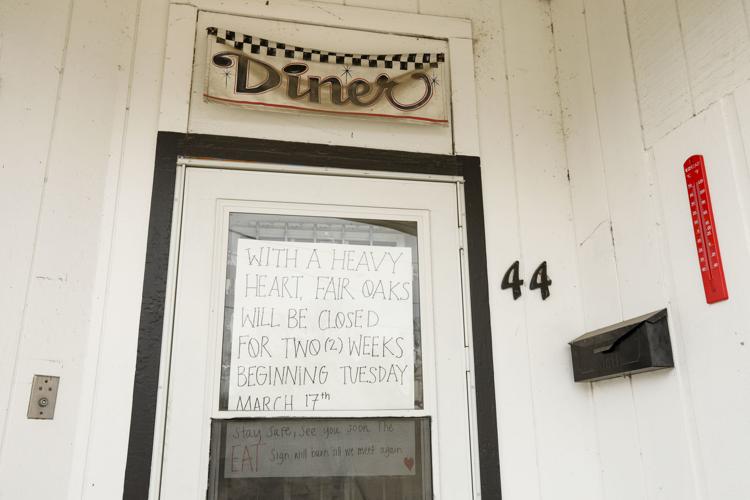 Diner
WITH A HEAVY
HEART, FAIR OAKS
WILL BE CLOSED
FOR TWO (2) WEEKS
BEGINNING TUESDAY
MARCH 17th
Stay safe, see you soon. The
EAT Sign will burn 'till we meet again
44